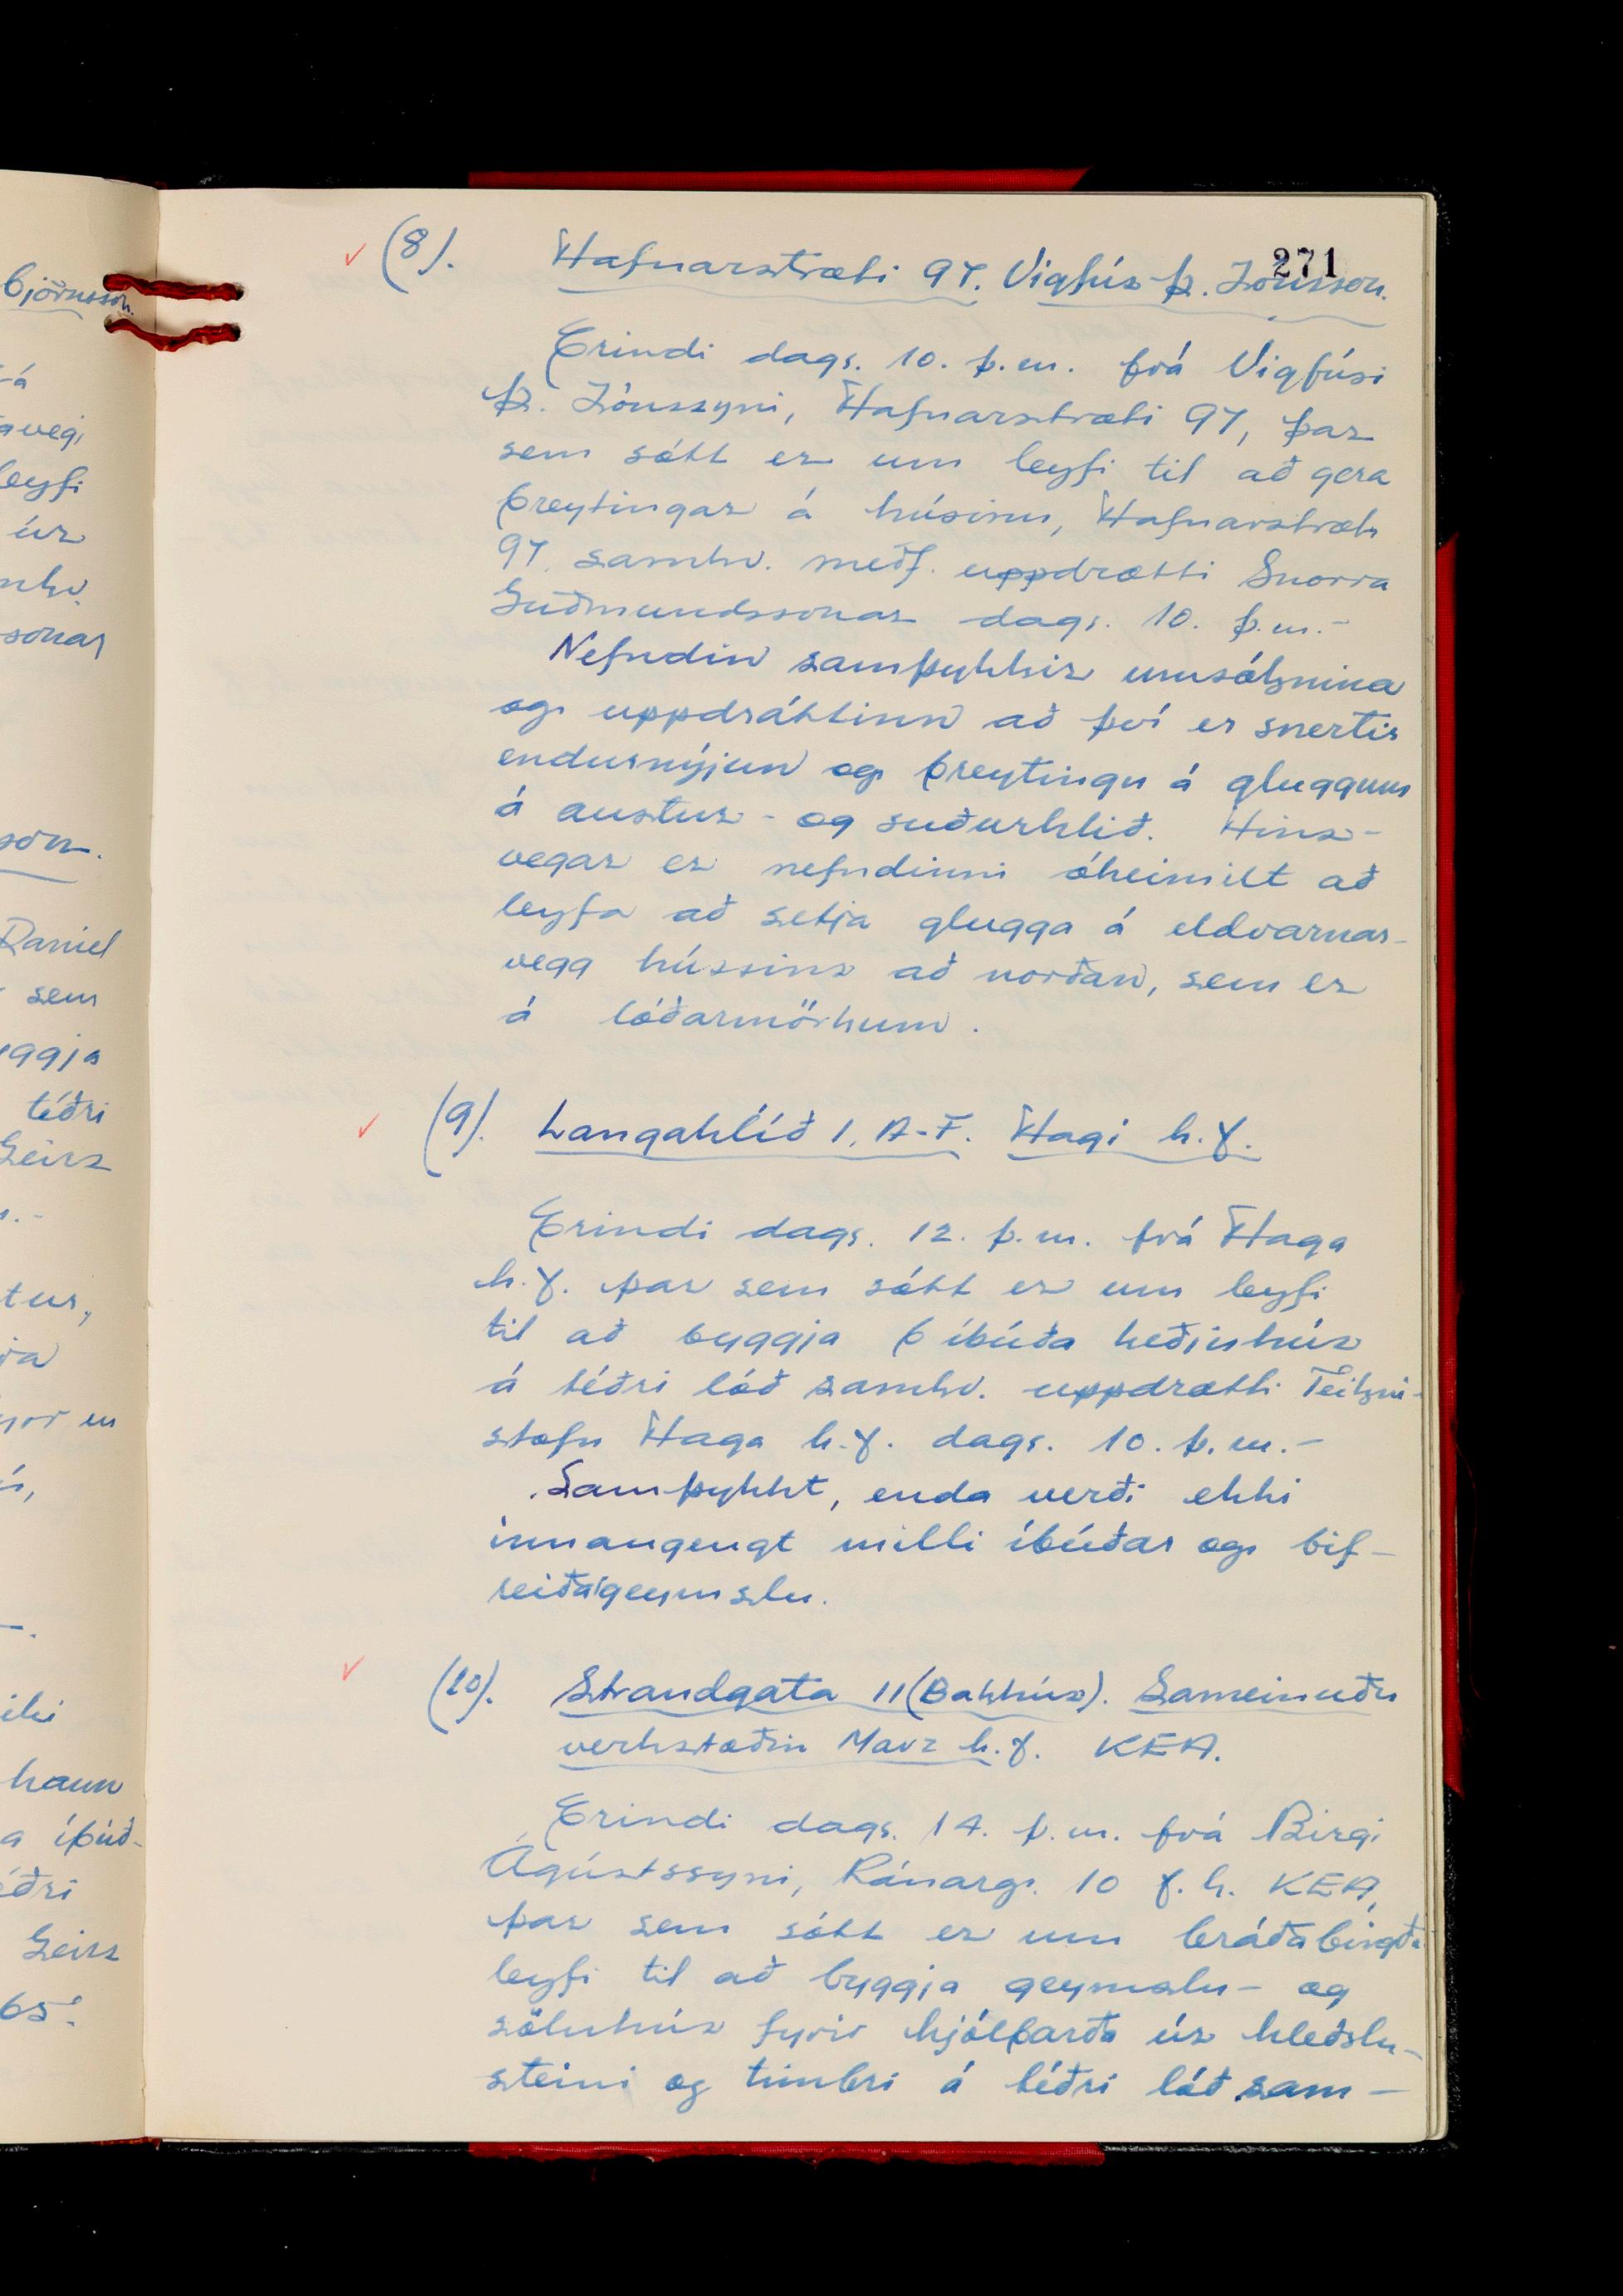 Björnsson.
-á
avegi
leyfi
úr
mhv.
sonar
son.
Daniel
sem
yggja
téðri
Geirs
tur,
ra
hann
a íbúð-
éðri
Geirs
65.
271
(8). Hafnarstræti 97. Vigfús Þ. Jónsson.
Erindi dags. 10. þ.m. frá Vigfúsi
Þ. Jónssyni, Hafnarstræti 97, þar
sem sótt er um leyfi til að gera
breytingar á húsinu, Hafnarstræti
97. samhv. meðf. uppdrætti Snorra
Guðmundssonar dags. 10. þ.m.-
Nefndin samþykkir umsóknina
og uppdráttinn að því er snertir
endurnýjun og breytingu á gluggum
á austur- og suðurhlið. Hins-
vegar er nefndinni óheimilt að
leyfa að setja glugga á eldvarnar-
vegg hússins að norðan, sem er
á lóðarmörkum.
(9). Langahlíð 1, A-F. Hagi h.f.
Erindi dags. 12. þ.m. frá Haga
h.f. þar sem sótt er um leyfi
til að byggja 6 íbúða keðjuhús
á téðri lóð samhv. uppdrætti Teikni-
stofu Haga h.f. dags. 10. þ.m.-
Samþykkt, enda verði ekki
innangengt milli íbúðar og bif-
reiðageymslu.
(10). Strandgata 11 (Bakhús). Sameinuðu
verkstæðin Marz h.f. KEA.
Erindi dags. 14. þ.m. frá Birgi
Ágústssyni, Ránarg. 10 f.h. KEA,
þar sem sótt er um bráðabirgða
leyfi til að byggja geymslu- og
söluhús fyrir hjólbarða úr hleðslu-
steini og timbri á téðri lóð sam-